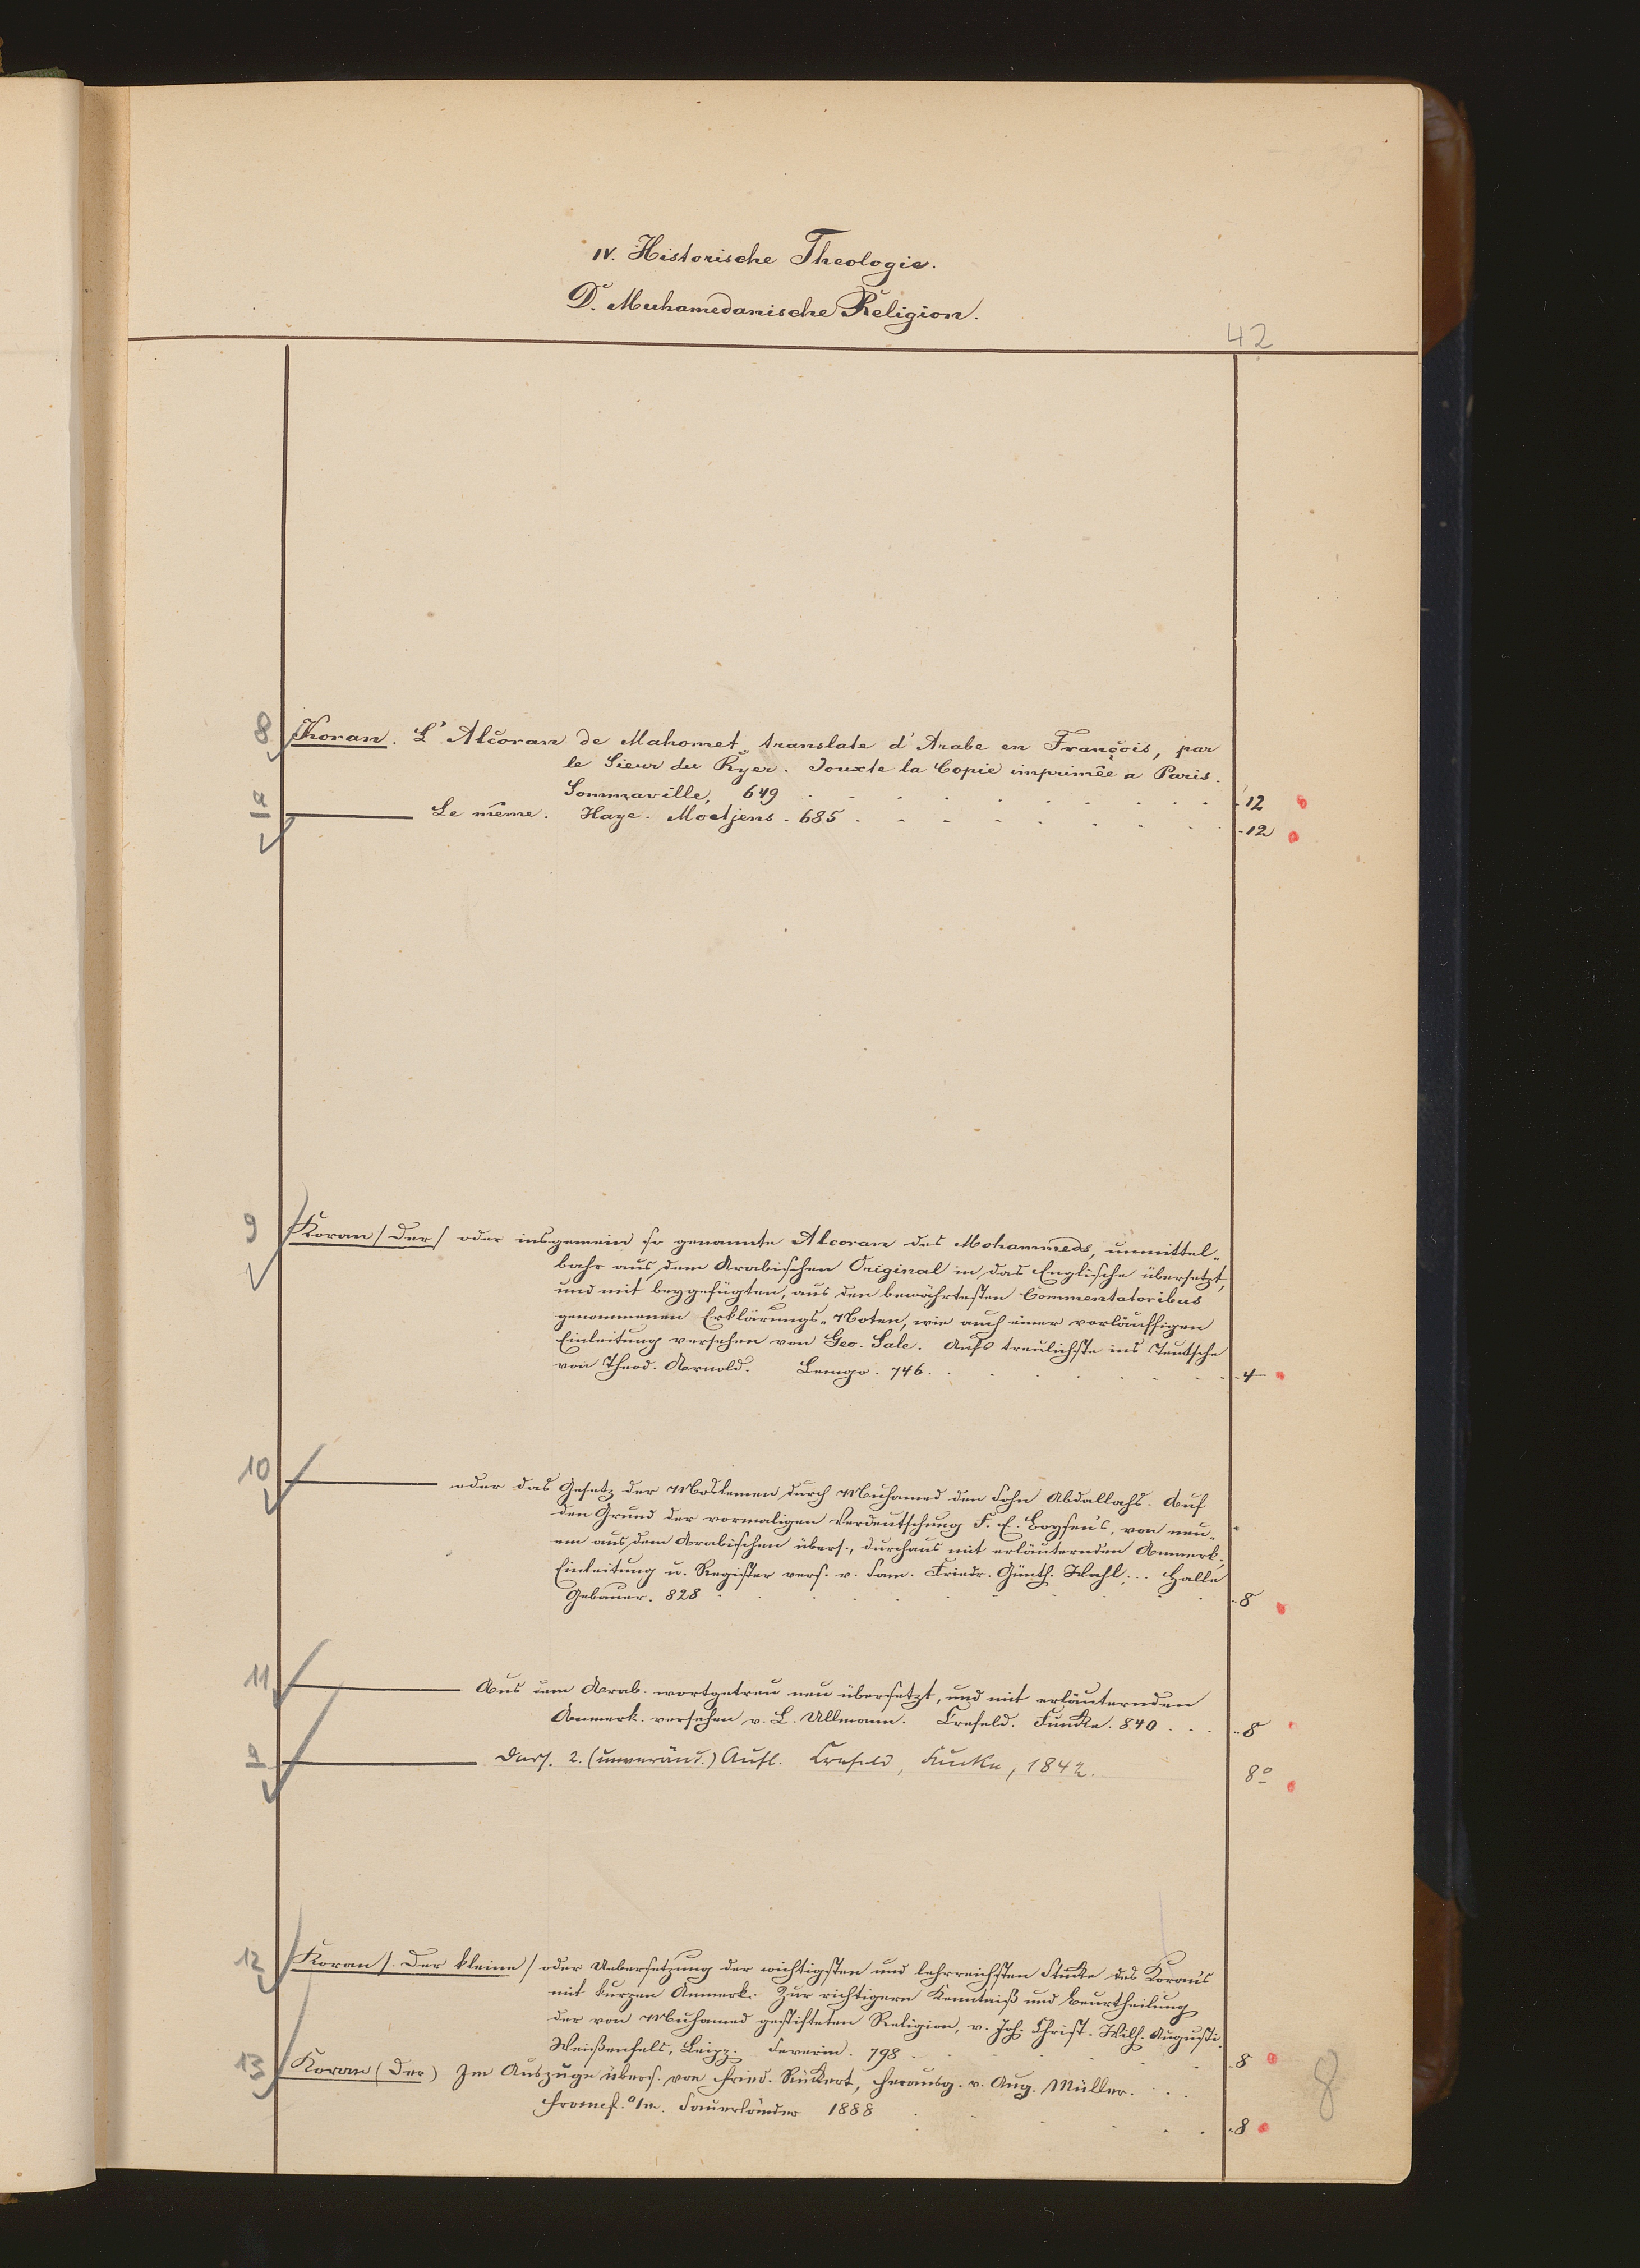 IV. Historische Theologie.
D. Muhamedanische Religion.
42
8 Koran. L'Alcoran de Mahomet, translate d'Arabe en François, par
le Sieur du Ryer. Jouxte la Copie imprimêe a Paris.
Sommaville, 649 . . . . . . . . 12
a Le même. Haye. Moetjens. 685 . . . . . . . . 12
9 Koran / Der / oder insgemein so genannte Alcoran des Mohammeds, unmittel-
bahr aus dem Arabischen Original in das Englische übersetzt,
und mit beygefügten, aus den bewährtesten Commentatoribus
genommenen Erklärungs-Noten, wie auch einer vorläuffigen
Einleitung versehen von Geo. Sale. Aufs treulichste ins Teutsche
von Theod. Arnold. Lemgo. 746. . . . . . . 4
10 oder das Gesetz der Moslemen durch Muhamed den Sohn Abdallahs. Auf
den Grund der vormaligen Verdeutschung F. E. Boysen's, von neu-
em aus dem Arabischen übers., durchaus mit erläuternden Anmerk.,
Einleitung u. Register vers. v. Sam. Friedr. Günth. Wahl; ... Halle
Gebauer. 828 . . . . . . . . 8
11 Aus dem Arab. wortgetreu neu übersetzt, und mit erläuternden
Anmerk. versehen v. L. Ullmann. Crefeld. Funcke. 840 . . . 8
a Dass. 2. (unveränd.) Aufl. Crefeld, Funcke, 1842. 8o
12 Koran /. Der kleine / oder Uebersetzung der wichtigsten und lehrreichsten Stücke des Koran's
mit kurzen Anmerk. Zur richtigern Kenntniß und Beurtheilung
der von Muhamed gestifteten Religion, v. Joh. Christ. Wilh. Augusti.
Weißenfels, Leipz. Severin. 798 . . . . . . . 8
13 Koran (Der) Im Auszuge übers. von Fried. Rückert, herausg. v. Aug. Müller. . . .
Francf. a/m. Sauerländer 1888 . . . . 8
8